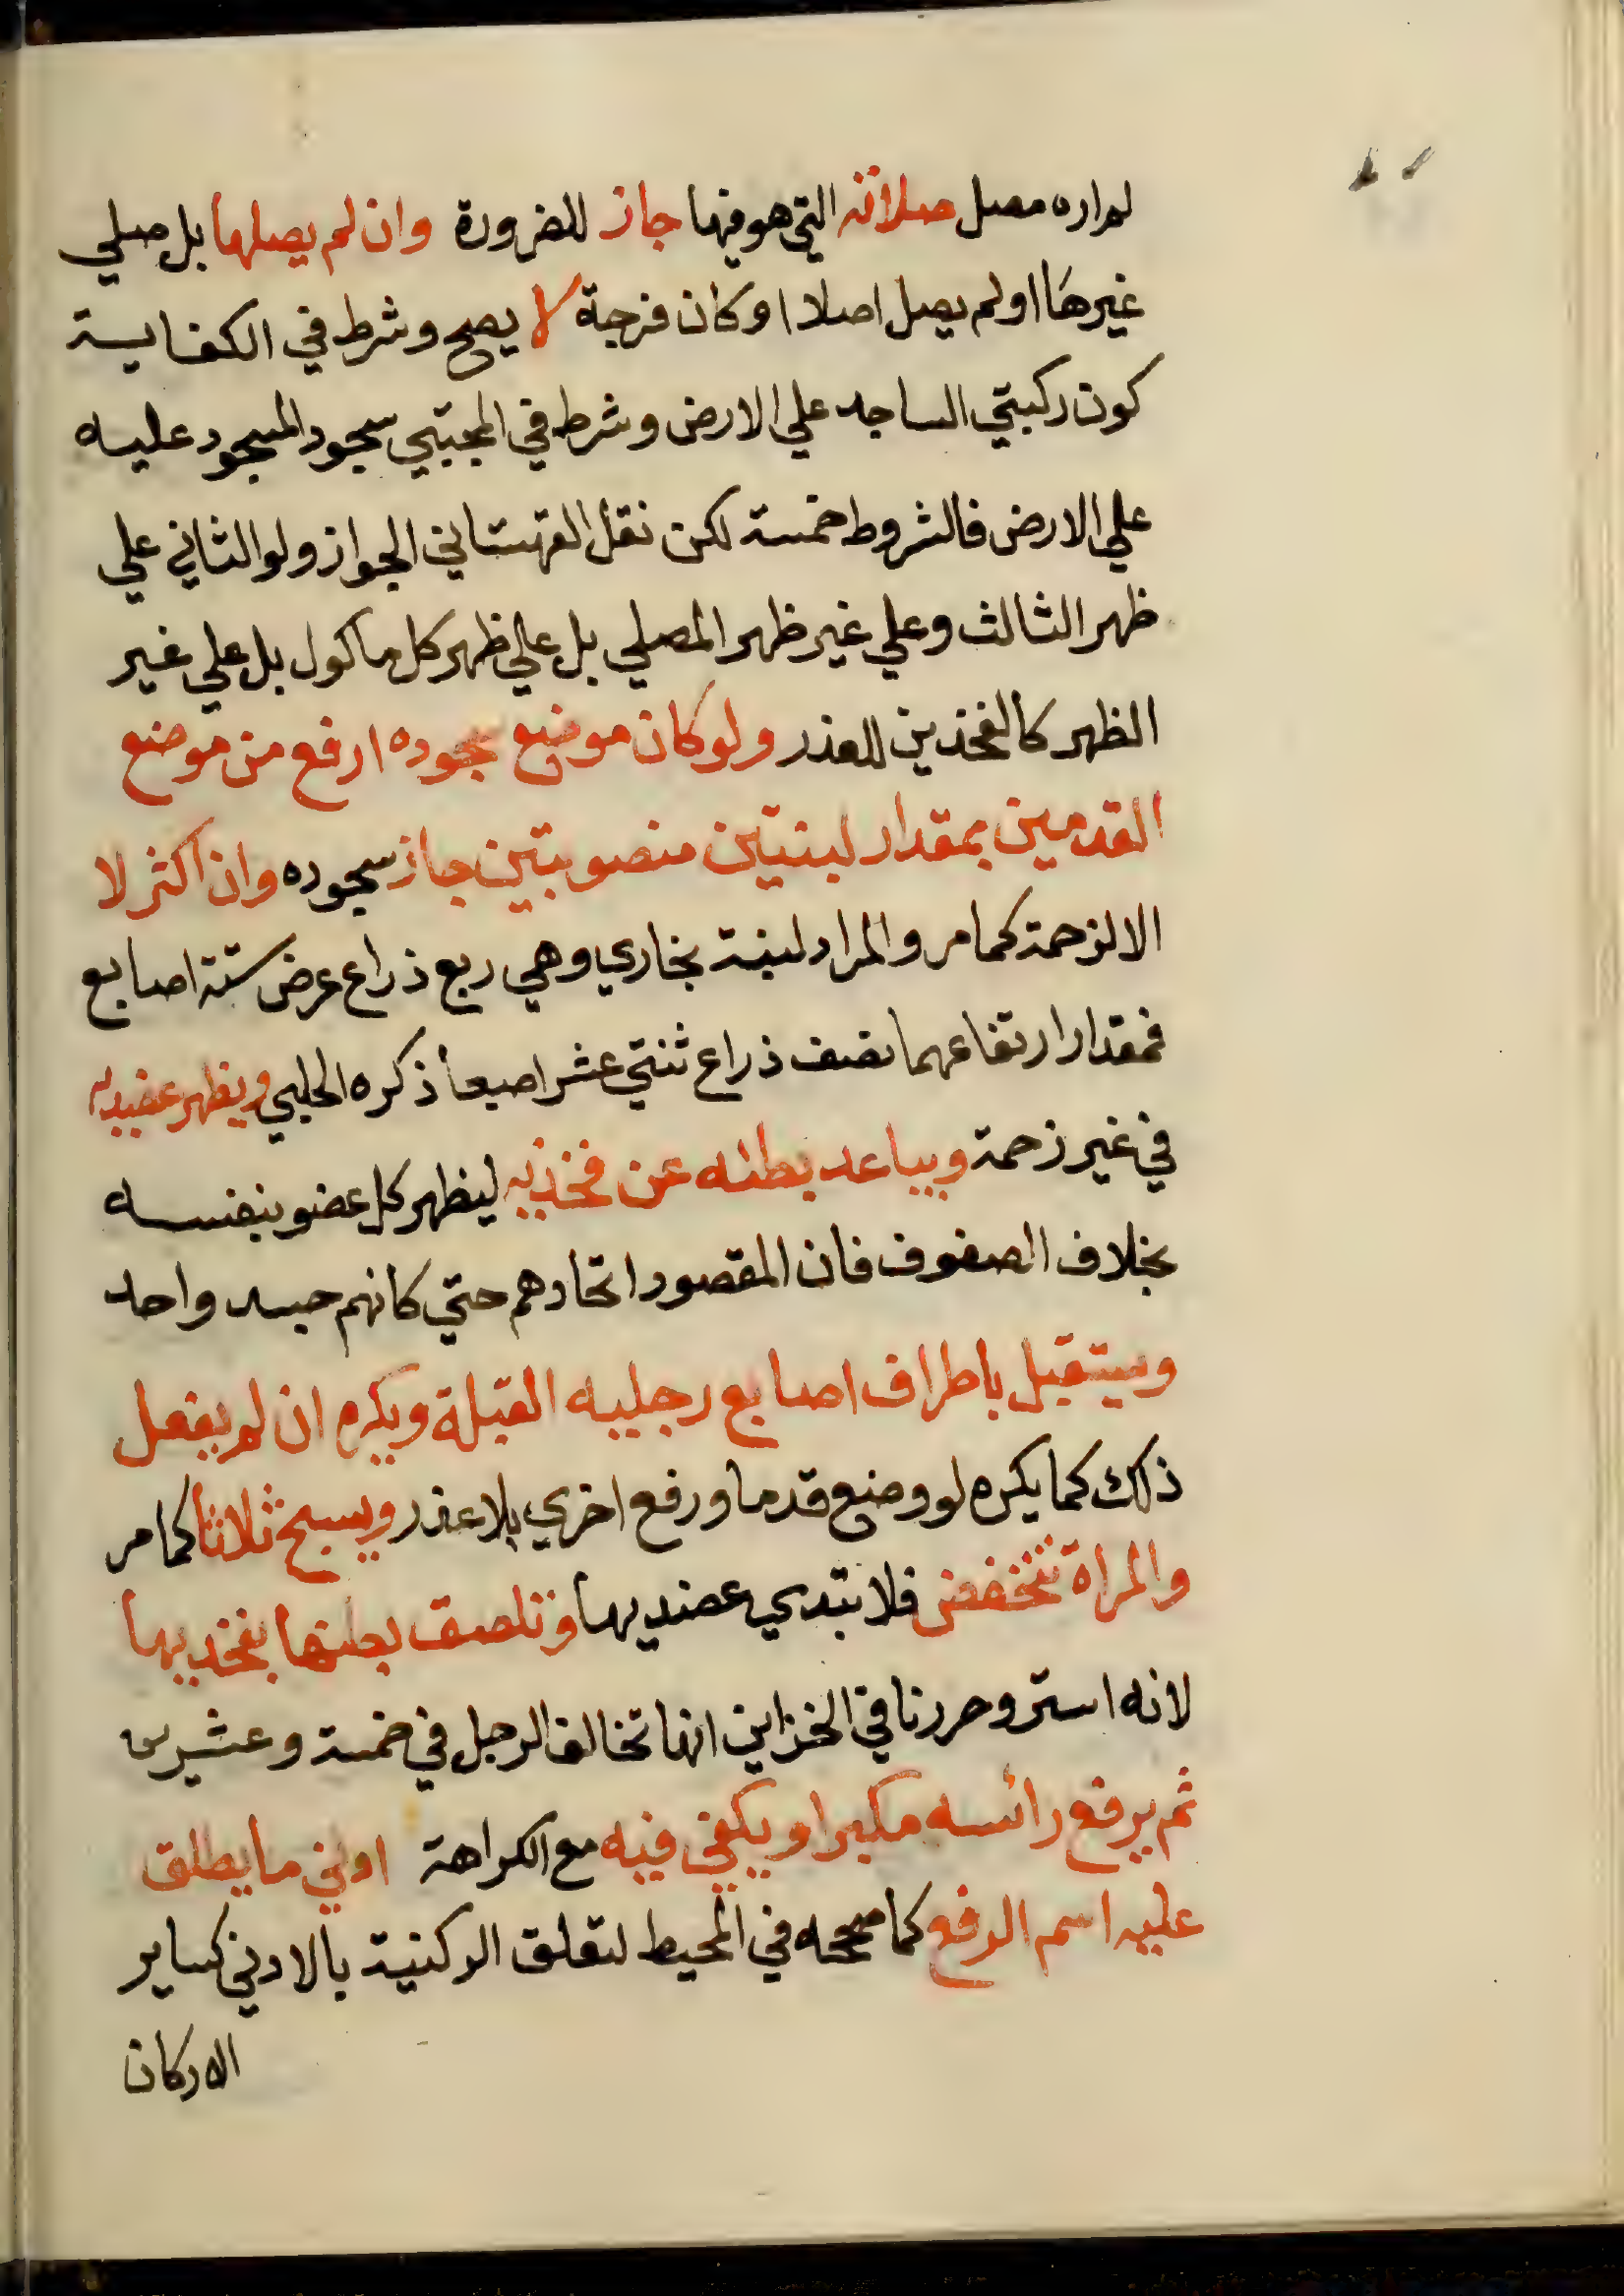 لم اره مصل صلاته التي هو فيها جاز للضرورة وان لم يصلها بل صلي
غيرها او لم يصل اصلا او كان فرجة لا يصح وشرط في الكفاية
كون ركبتي الساجد علي الارض وشرط في المجتبي سجود المسجود عليه
علي الارض فالشروط خمسة لكن نقل القهستاني الجواز ولو الثاني علي
ظهر الثالث وعلي غير ظهر المصلي بل علي ظهر كل ماكول بل علي غير
الظهر كالفخذين للعذر ولو كان موضع سجوده ارفع من موضع
القدمين بمقدار لبنتين منصوبتين جاز سجوده وان اكثر لا
الا لزحمة كما مر والمراد لبنة بخاري وهي ربع ذراع عرض ستة اصابع
فمقدار ارتفاعهما نصف ذراع ثنتي عشر اصبعا ذكره الحلبي ويظهر عضديه
في غير زحمة ويباعد بطنه عن فخذيه ليظهر كل عضو بنفسه
بخلاف الصفوف فان المقصود اتحادهم حتي كانهم جسد واحد
ويستقبل باطراف اصابع رجليه القبلة ويكره ان لم يفعل
ذلك كما يكره لو وضع قدما ورفع اخري بلا عذر ويسبح ثلاثا كما مر
والمراة تنخفض فلا تبدي عضديها وتلصق بطنها بفخديها
لانه استر وحررنا في الخزاين انها تخالف الرجل في خمسة وعشرين
ثم يرفع رائسه مكبرا ويكفي فيه مع الكراهة ادني ما يطلق
عليه اسم الرفع كما صححه في المحيط لتعلق الركنية بالادني كساير
الاركان